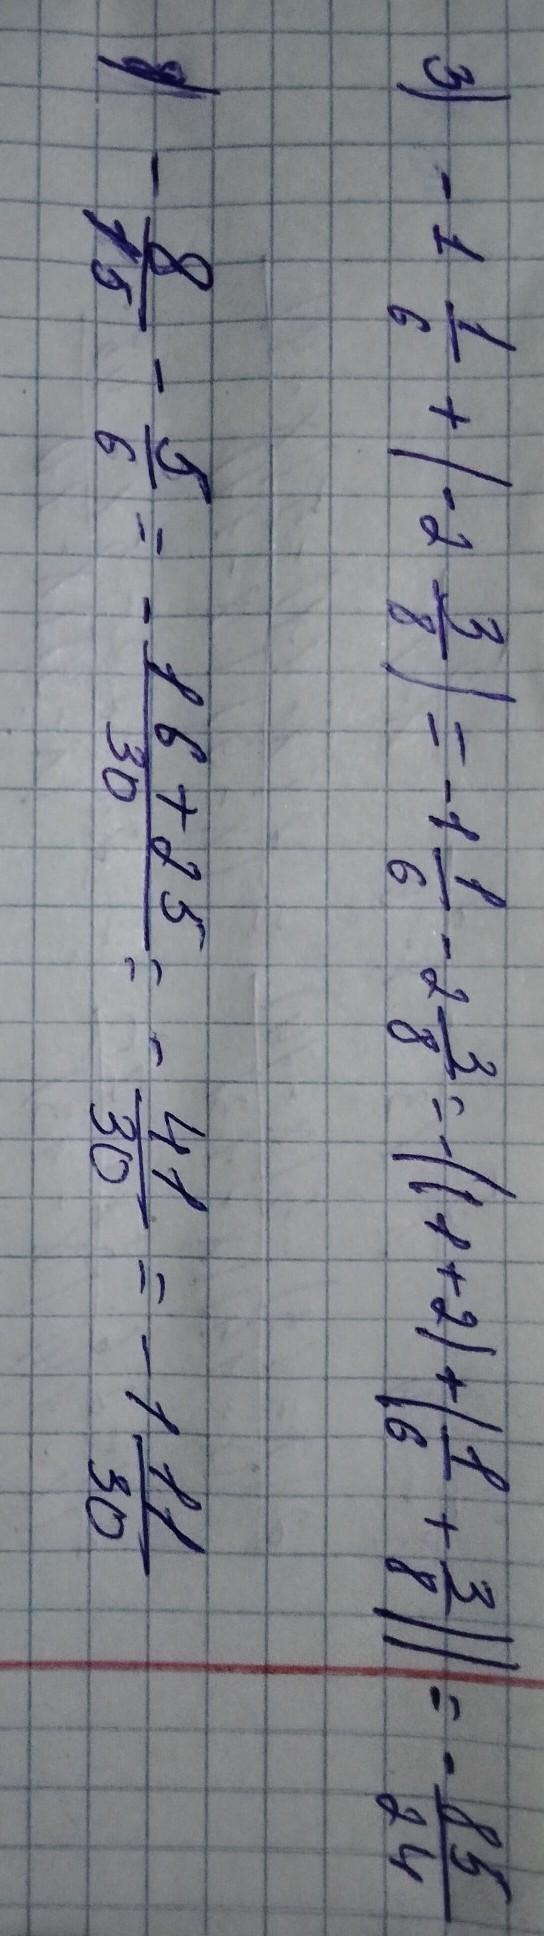 3) - 1 1/6 + (-2 3/8) = -1 1/6 - 2 3/8 = -((1+2)+(1/6 + 3/8)) = - 85/24
- 8/15 - 5/6 = - 16+25/30 = - 41/30 = - 1 11/30